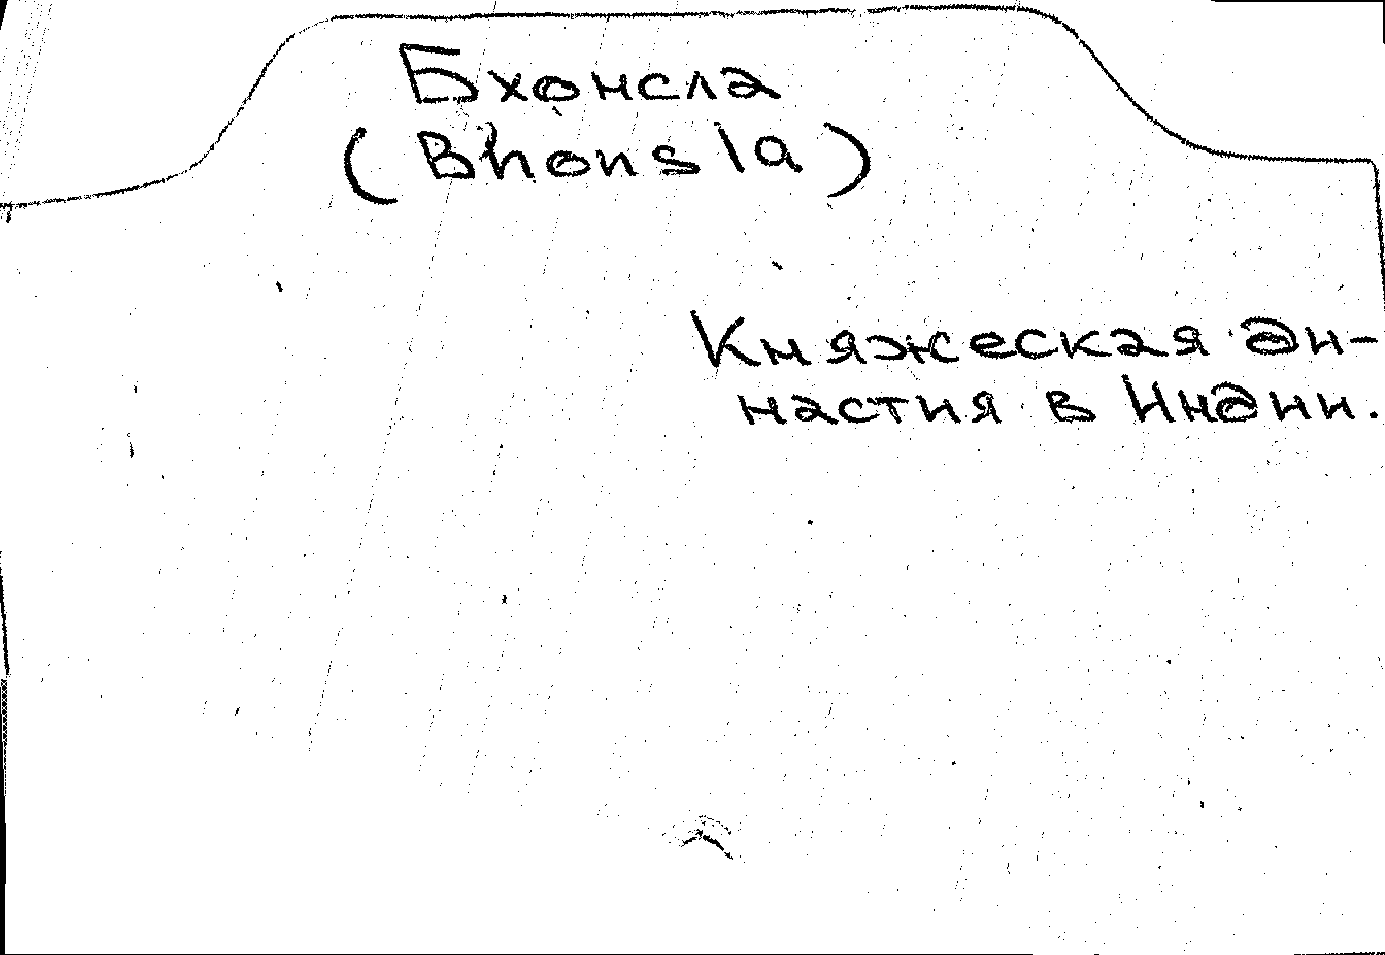 Бхонсла
(Bhonsla)
Княжеская ди-
настия в Индии.